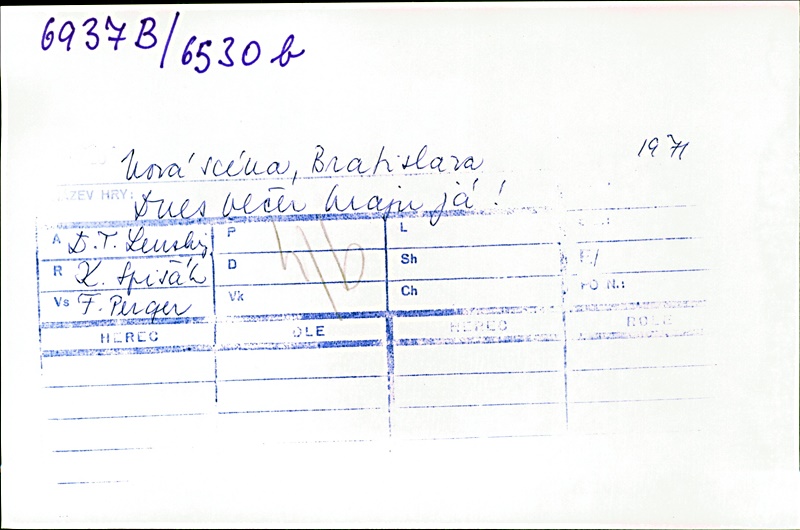 6937B/6530b
Nová scéna, Bratislava 1971
ZEV HRY: Dnes večer hraju já!
A D.T. Lenský P L
R K. Spišák D Sh F/
Vs F. Perger Vk Ch PO N.:
HEREC OLE HEREC ROLE